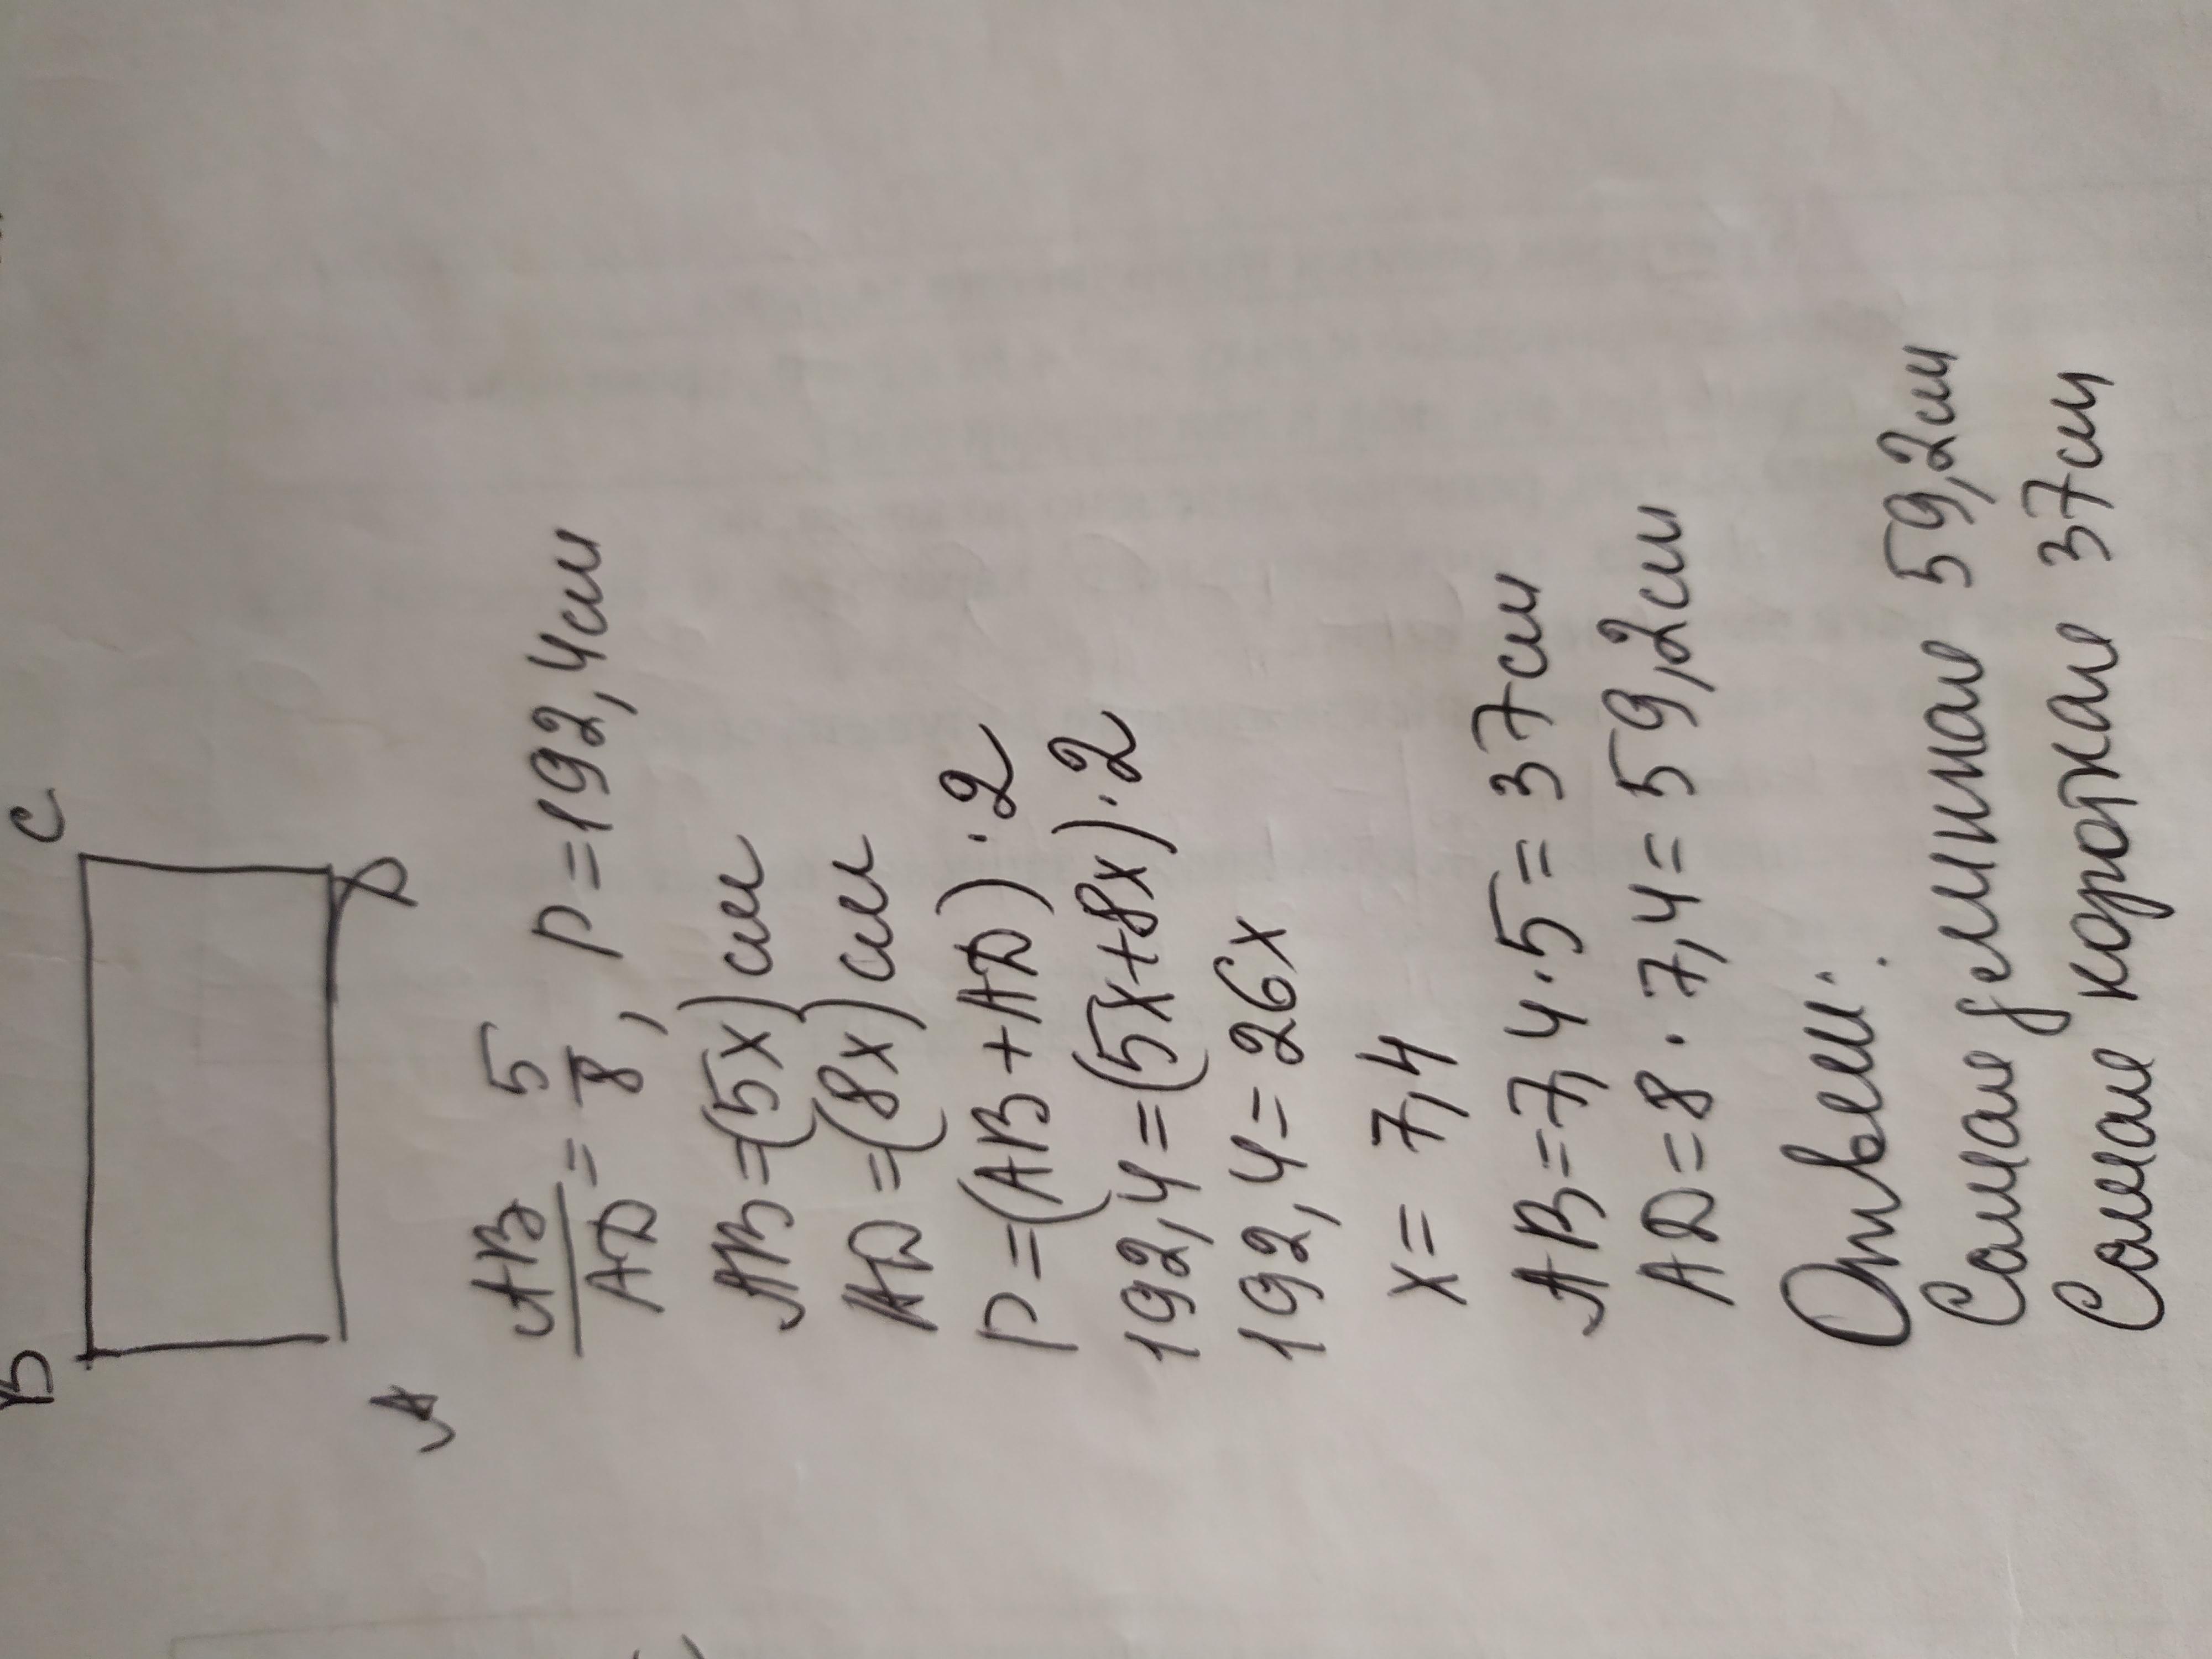 B C
A D
AB/AD = 5/8, P = 192,4 см
AB = (5x) см
AD = (8x) см
P = (AB + AD) · 2
192,4 = (5x + 8x) · 2
192,4 = 26x
x = 7,4
AB = 7,4 · 5 = 37 см
AD = 8 · 7,4 = 59,2 см
Ответ:
Самая длинная 59,2 см
Самая короткая 37 см